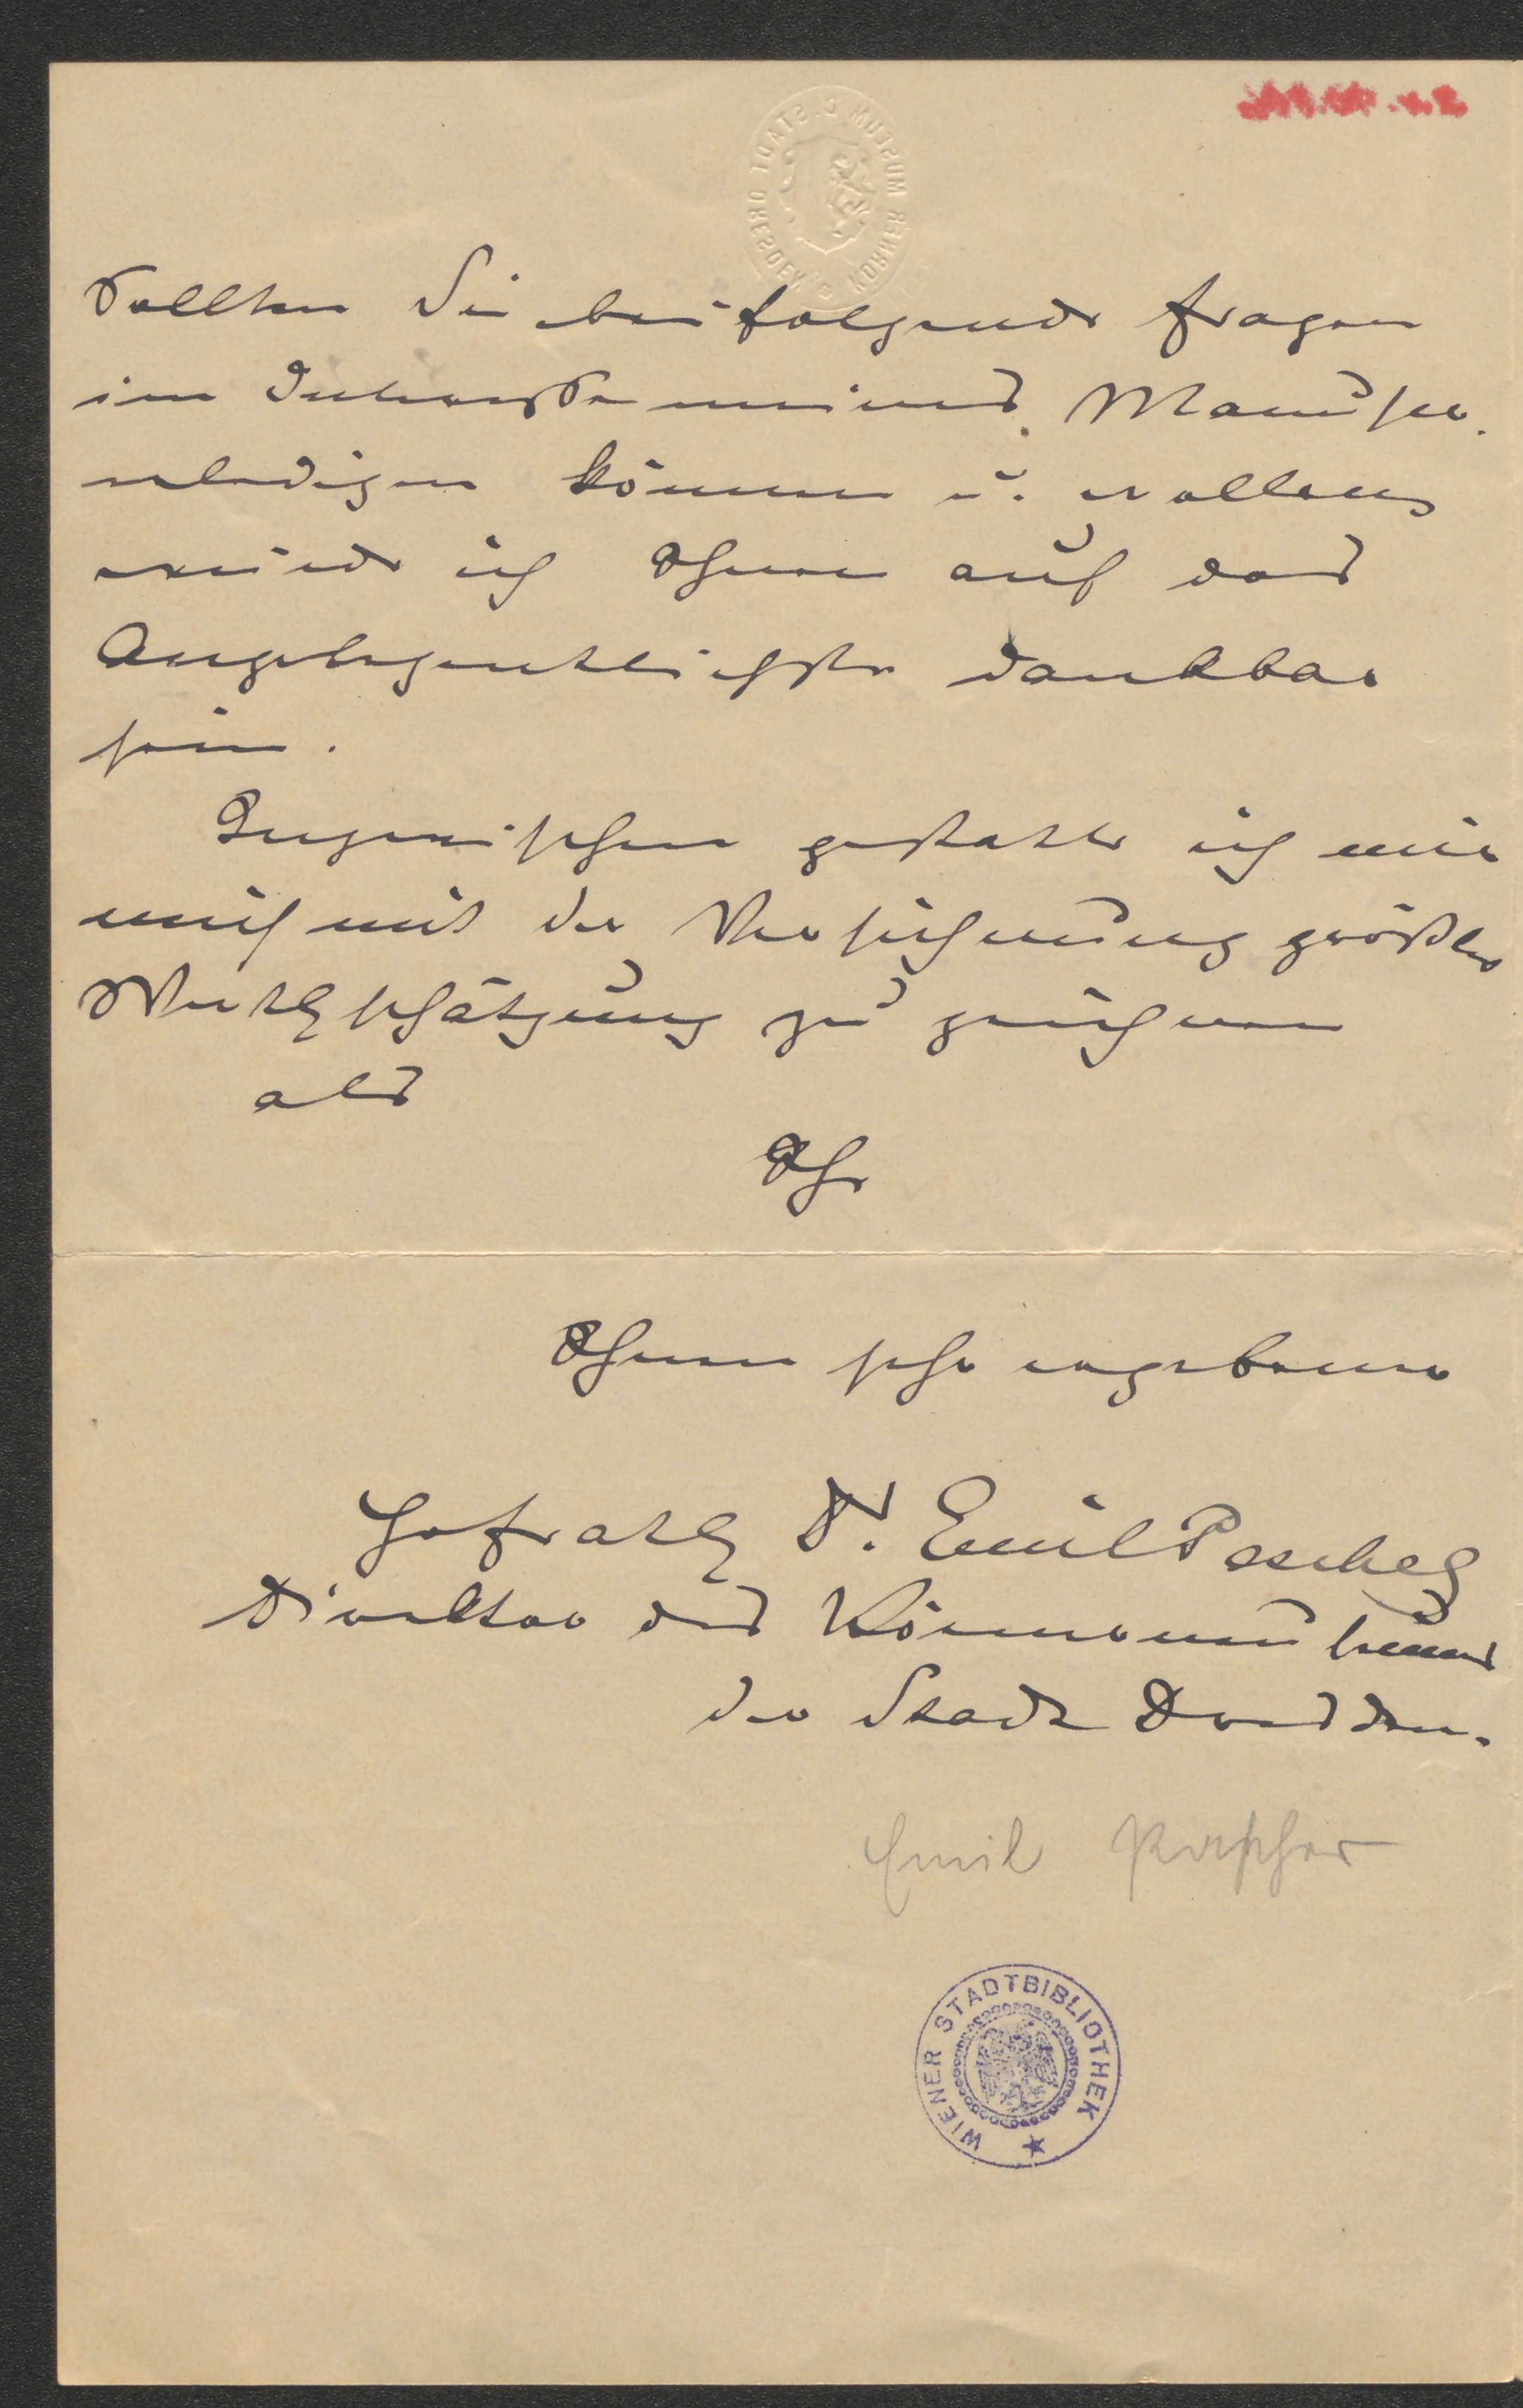 KÖRNER MUSEUM D. STADT DRESDEN
Sollten Sie beifolgende Fragen
im Interesse meines Manuscr.
erledigen können u. wollen,
würde ich Ihnen auf das
Angelegentlichste dankbar
sein.
Inzwischen gestatte ich mir
mich mit der Versicherung größter
Werthschätzung zu zeichnen
als
Ihr
Ihnen sehr ergebener
Hofrath Dr. Emil Peschel
Direktor des Körnermuseums
der Stadt Dresden.
Emil
WIENER STADTBIBLIOTHEK